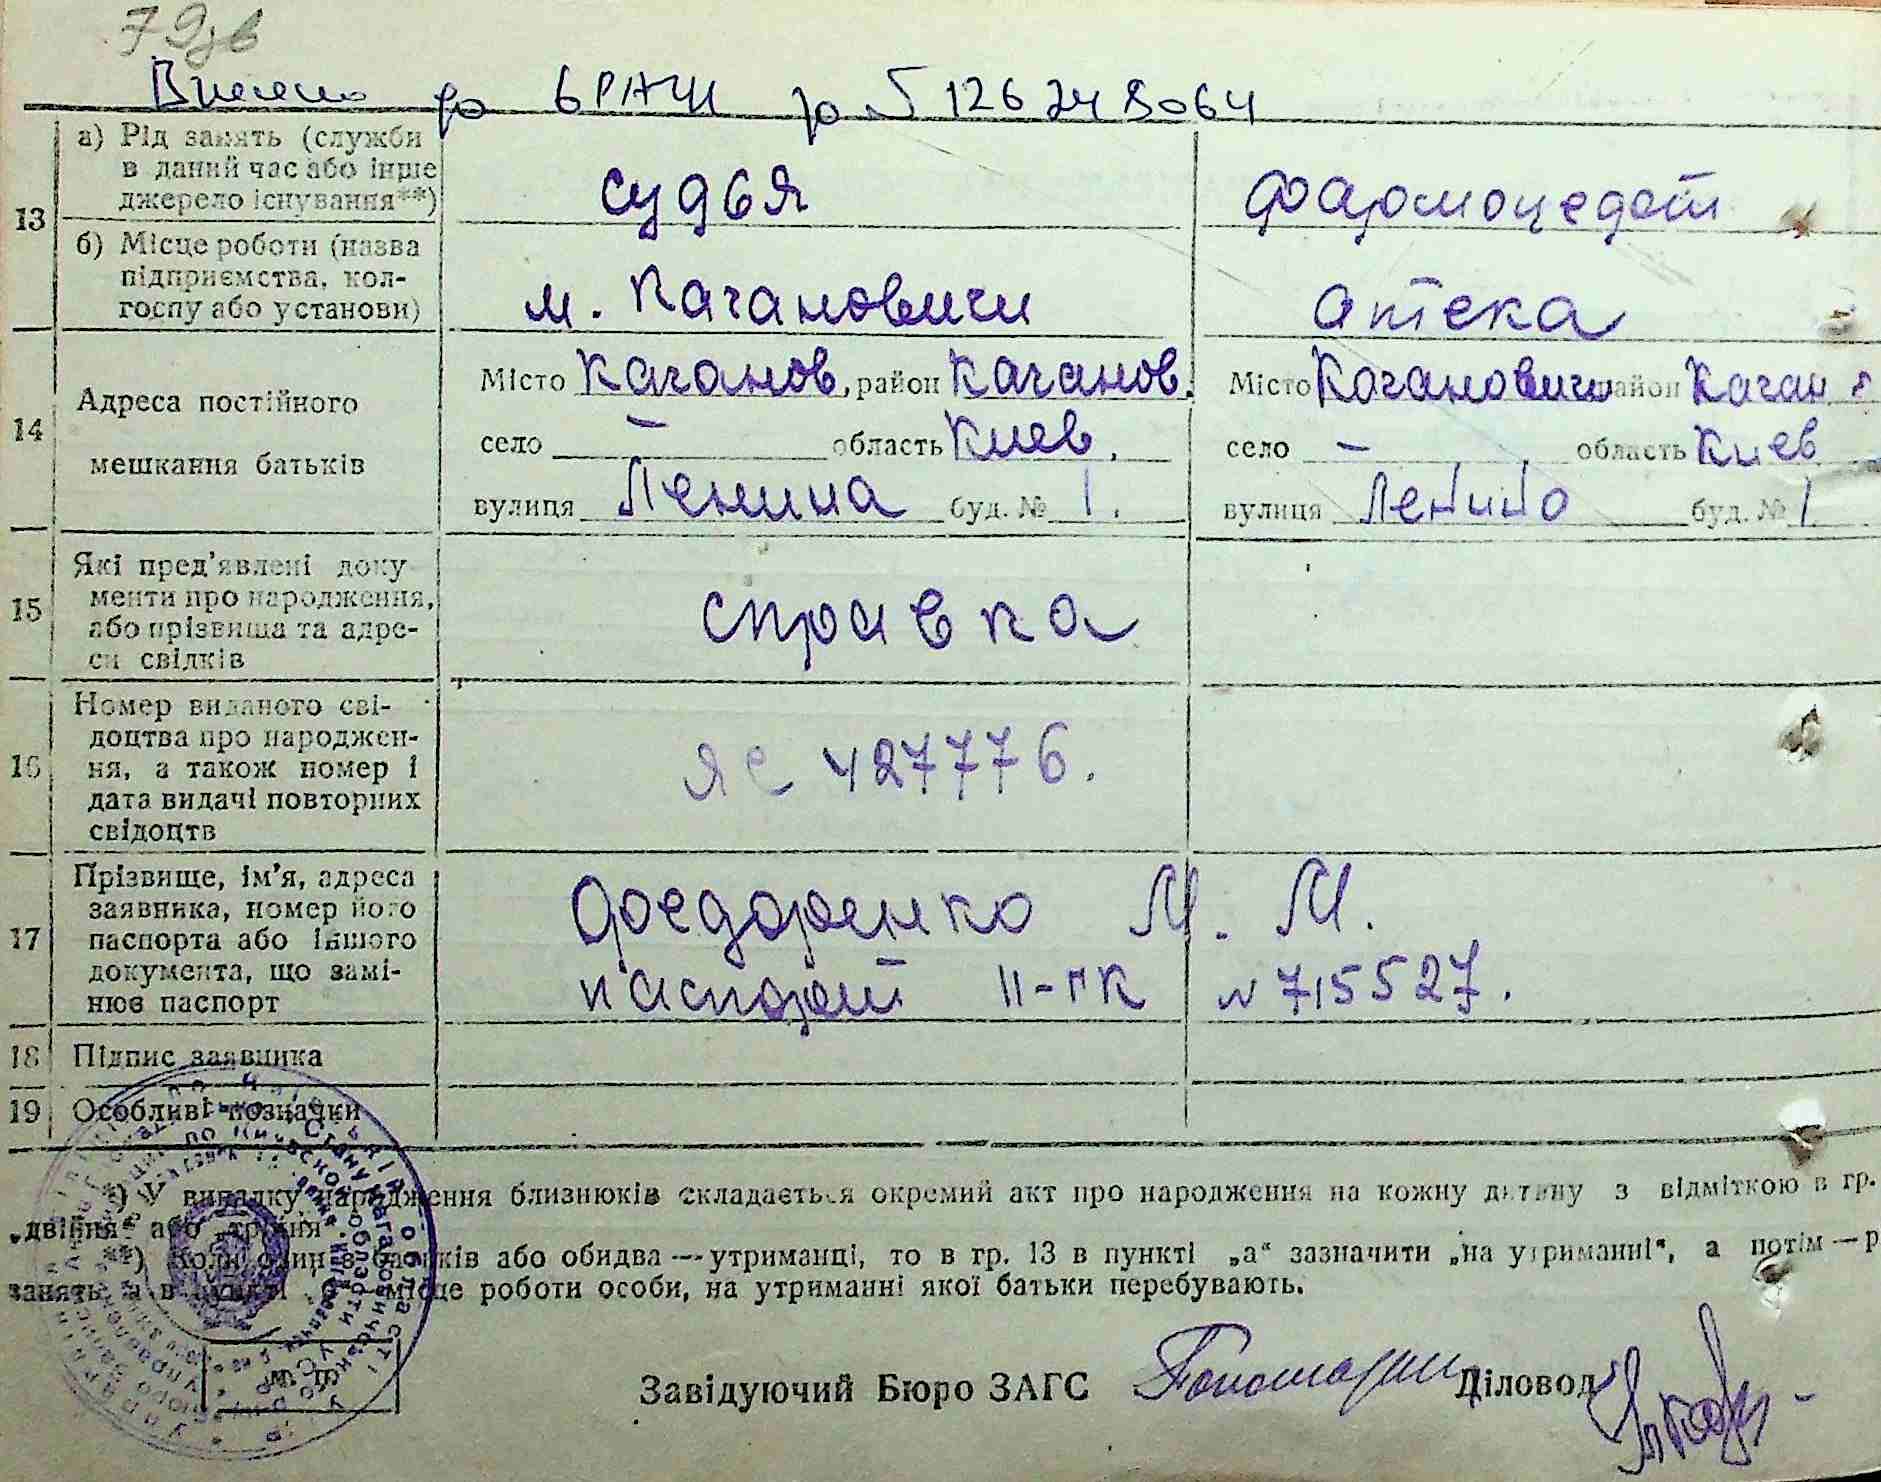 79зв
Внесено до ДРАЦС за № 126248064
13
а) Рід занять (служби в даний час або інше джерело існування**)
судья
фармацедот
б) Місце роботи (назва підприємства, колгоспу або установи)
м. Кагановичи
аптека
14
Адреса постійного мешкання батьків
Місто Каганов. район Каганов.
Місто Кагановичи район Каган
село — область Киев.
село — область Киев
вулиця Ленина буд. № 1.
вулиця Ленина буд. № 1
15
Які пред'явлені документи про народження, або прізвища та адреси свідків
справка
16
Номер виданого свідоцтва про народження, а також номер і дата видачі повторних свідоцтв
ЯС 427776.
17
Прізвище, ім'я, адреса заявника, номер його паспорта або іншого документа, що замінює паспорт
Федоренко М. М.
паспорт II-ГК № 715527.
18 Підпис заявника
19 Особливі позначки
*) У випадку народження близнюків складається окремий акт про народження на кожну дитину з відміткою в гр.
„двійня" або „трійня".
**) Коли один з батьків або обидва — утриманці, то в гр. 13 в пункті „а" зазначити „на утриманні", а потім — р
занять, а в пункті „б" місце роботи особи, на утриманні якої батьки перебувають.
М. П.
Завідуючий Бюро ЗАГС Діловод